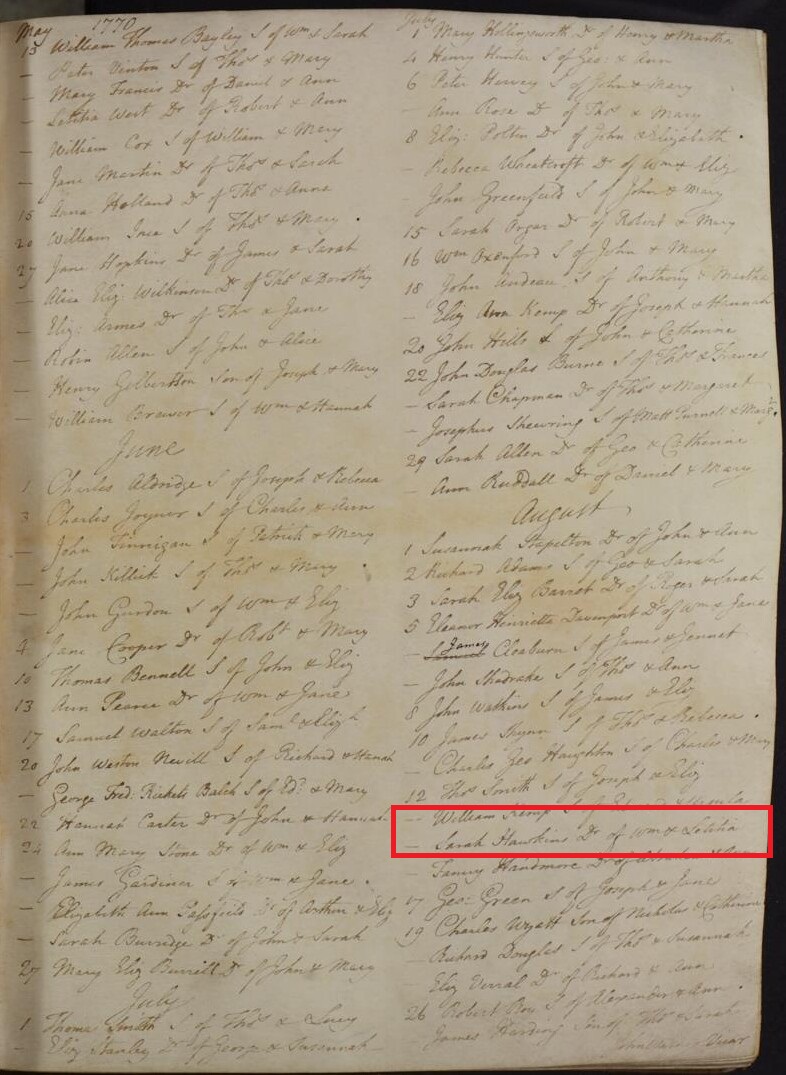 May 1770
13 William Thomas Bayley S of Wm & Sarah
— Peter Vinton S of Thos & Mary
— Mary Francis Dr of Daniel & Ann
— Letitia West Dr of Robert & Ann
— William Cox S of William & Mary
— Jane Martin Dr of Thos & Sarah
— Anna Holland Dr of Thos & Anna
15 William S of Thos & Mary
20 Jane Hopkins Dr of James & Sarah
27 Alice Eliz: Wilkinson Dr of Thos & Dorothy
— Eliz: Armes Dr of Thos & Jane
— Robin Allen S of John & Alice
— Henry Gilbertson Son of Joseph & Mary
— William Brewer S of Wm & Hannah
June
1 Charles Aldridge S of Joseph & Rebecca
3 Charles Joyner S of Charles & Ann
— John Finnigan S of Patrick & Mary
— John Killick S of Thos & Mary
— John Gurdon S of Wm & Eliz
4 Jane Cooper Dr of Robt & Mary
10 Thomas Bennell S of John & Eliz
13 Ann Pearce Dr of Wm & Jane
17 Samuel Walton S of Saml & Eliz
20 John Weston Nevill S of Richard & Hannah
— George Fred: Rickets Balch S of Ed: & Mary
22 Hannah Carter Dr of John & Hannah
24 Ann Mary Stone Dr of Wm & Eliz
— James Gardiner S of Wm & Jane
— Elizabeth Ann Dr of Arthur & Eliz
— Sarah Burridge D of John & Sarah
27 Mary Eliz Burrill Dr of John & Mary
July
1 Thomas Smith S of Thos & Lucy
— Eliz Stanley Dr of George & Susannah
July
1 Mary Hollingsworth Dr of Henry & Martha
4 Henry Hunter S of Geo: & Ann
6 Peter Harvey S of John & Mary
— Ann Rose D of Thos & Mary
8 Eliz: Potten Dr of John & Elizabeth
— Rebecca Wheatcroft Dr of Wm & Eliz
— John Greenfield S of John & Mary
15 Sarah Organ Dr of Robert & Mary
16 Wm Oxenford S of John & Mary
18 John Andeau S of Anthony & Martha
— Eliz Ann Kemp Dr of Joseph & Hannah
20 John Hills S of John & Catherine
22 John Douglas Burne S of Thos & Frances
— Sarah Chapman Dr of Thos & Margaret
— Josephus Shewring S of Matt Turnell & Marg:
29 Sarah Allen Dr of Geo & Catherine
— Ann Ruddall Dr of Daniel & Mary
August
1 Susannah Stapelton Dr of John & Ann
2 Richard Adams S of Geo & Sarah
3 Sarah Eliz Barret Dr of Roger & Sarah
5 Eleanor Henrietta Davenport Dr of Wm & Jane
— James Cleaburn S of James & Jennet
— John Shadrake S of Thos & Ann
8 John Watkins S of James & Eliz
10 James S of Thos & Rebecca
— Charles Geo Haughton S of Charles & Mary
12 Thos Smith S of Joseph & Eliz
— William Kemp S of Edward & Ursula
— Sarah Hawkins Dr of Wm & Letitia
— Fanny Handmore Dr of Abraham & Ann
17 Geo: Green S of Joseph & Jane
19 Charles Wyatt Son of Nicholas & Catherine
— Richard Douglas S of Thos & Susannah
— Eliz Verral Dr of Richard & Ann
26 Robert Roy S of Alexander & Ann
— James Harding Son of Thos & Sarah